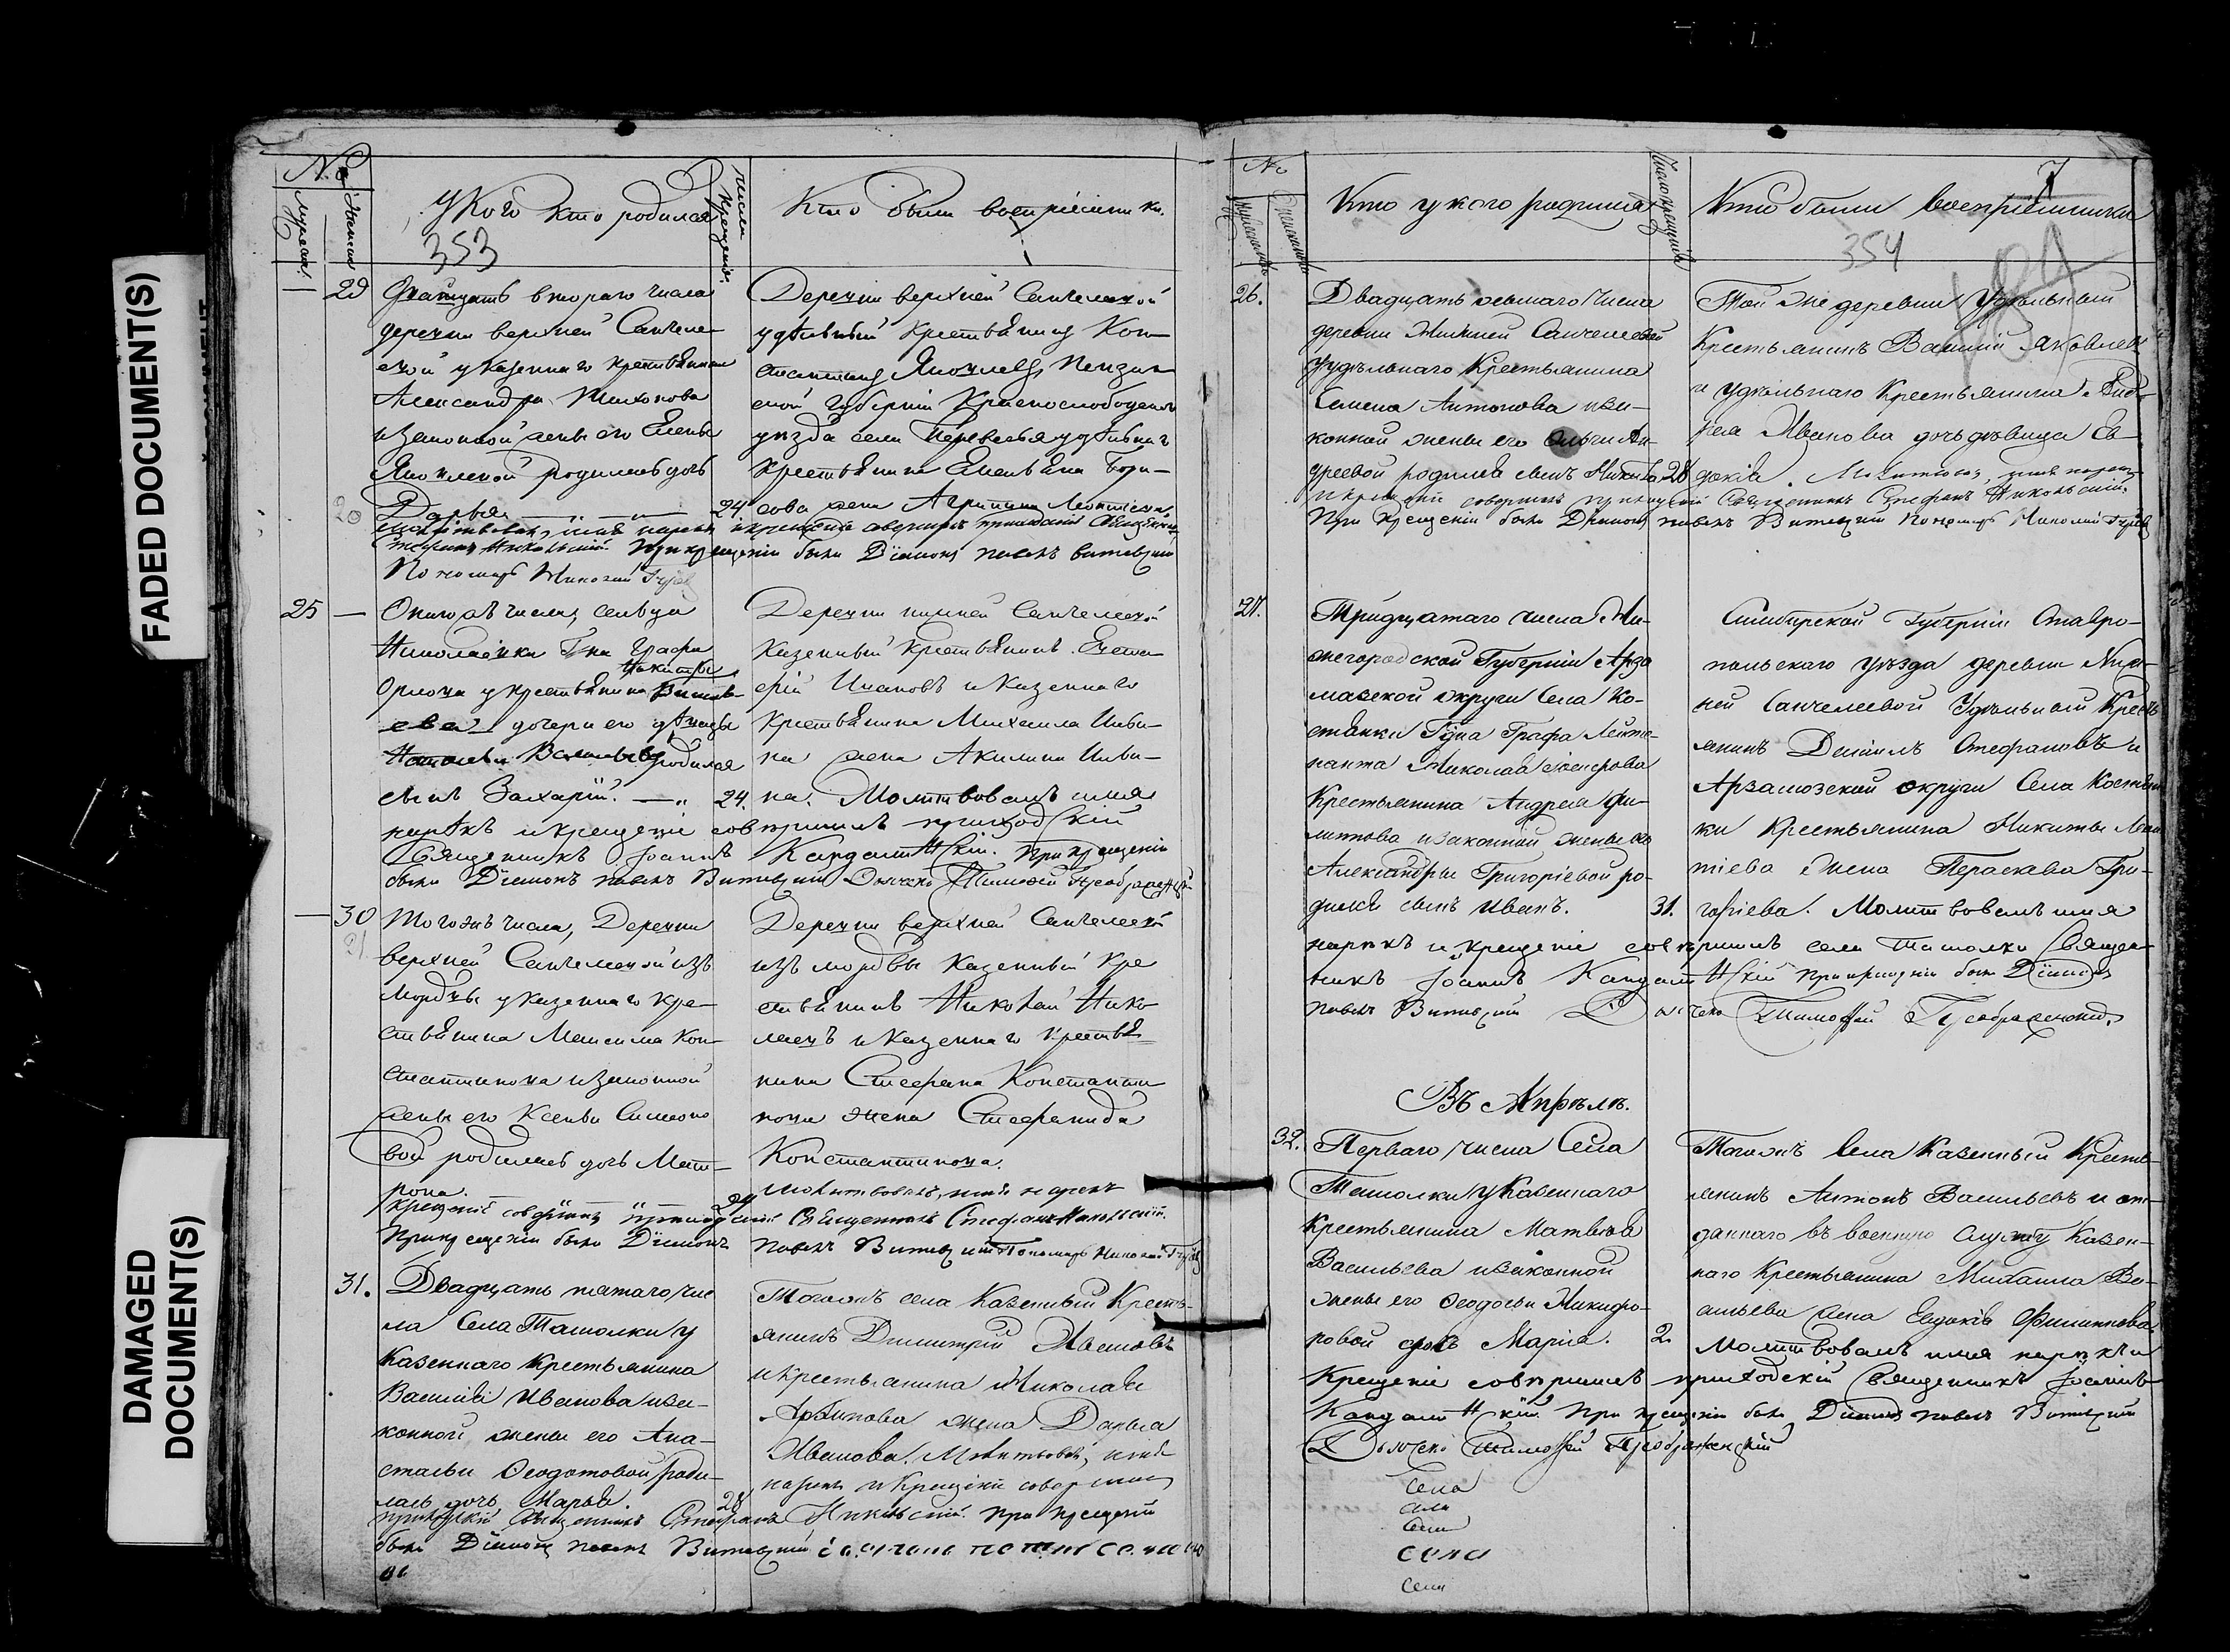 FADED DOCUMENT(S)
DAMAGED
DOCUMENT(S)
№
У кого кто родился
Кто были воспріемники.
353
29
Двадцать втораго числа
деревни верхней Санчеле-
евой у казеннаго крестьянина
Александра Тихонова
и законной жены его Елены
Яковлевой родилась дочь
Дарья 24.
20
Деревни верхней Санчелеевой
удѣльный крестьянинъ Кон-
стантинъ Яковлевъ, Пензен-
ской губерніи Краснослободскаго
уѣзда села Перевесья удѣльнаго
крестьянина Емельяна Бори-
сова жена Агрипина Леонтіева.
Молитвовалъ, имя нарекъ и крещеніе совершилъ приходскій Священникъ
Стефанъ Никольскій. При крещеніи были Діаконъ Павелъ
Пономарь Николай
25
Онаго жъ числа, сельца
Николаевки Г-на Графа
Орлова у крестьянина
дочери его дѣвицы
родился
сынъ Захарій. 24.
Деревни нижней Санчелеевой
казенный крестьянинъ
Ивановъ и казеннаго
крестьянина Михаила Иви-
на жена Акилина Иви-
на. Молитвовалъ имя
нарѣкъ и крещеніе совершилъ приходскій
Священникъ Іоаннъ При крещеніи
были Діаконъ Павелъ Дьячекъ Тимофей Преображенскій
30
Того жъ числа, Деревни
верхней Санчелеевой изъ
мордвы у казеннаго кре-
стьянина Максима Кон-
стантинова и законной
жены его Ксеньи Симеоно
вой родилась дочь Мат-
рона. 24
Деревни верхней Санчелеевой
изъ мордвы казенный кре
стьянинъ Николай Нико
лаевъ и казеннаго крестья-
нина Стефана Константи
нова жена Стефанида
Константинова.
Молитвовалъ, имя нарекъ
Крещеніе совершилъ приходскій Священникъ Стефанъ Никольскій.
При крещеніи были Діаконъ Павелъ Пономарь Николай
31.
Двадцать пятаго чис
ла Села Ташолки у
Казеннаго крестьянина
Василія Иванова и за-
конной жены его Ана-
стасьи Ѳеодотовой роди-
лась дочь Марья. 28
Тогожъ села Казенный Кресть-
янинъ Димитрій Ивановъ
и крестьянина Николая
жена Дарья
Иванова. Молитвовалъ, имя
нарекъ и Крещеніе совершилъ
приходскій Священникъ Стефанъ Никольскій. При крещеніи
были Діаконъ Павелъ
№
Кто у кого родился
Число крещенія
Кто были воспріемники
7
354
26.
Двадцать седьмаго числа
деревни Нижней Санчелеевой
Удѣльнаго Крестьянина
Семена Антонова и за-
конной жены его Ольги Ан-
дреевой родился сынъ Никита 28
Той же деревни Удѣльный
Крестьянинъ Василій Яковлевъ
и удѣльнаго Крестьянина Анд-
рея Иванова дочь дѣвица Ев-
докія. Молитвовалъ, имя нарекъ
и крещеніе совершилъ приходскій Священникъ Стефанъ Никольскій.
При крещеніи были Діаконъ Павелъ Пономарь Николай
27.
Тридцатаго числа Ни-
жегородской Губерніи Арза
масской округи Села Ко-
стянки Г-дна Графа Лейте-
нанта Николая
Крестьянина Андрея Фи-
липова и законной жены его
Александры Григоріевой ро-
дился сынъ Иванъ. 31.
Симбирской Губерніи Ставро-
польскаго уѣзда деревни Ниж-
ней Санчелеевой Удѣльный Кресть
янинъ Даніилъ Стефановъ и
Арзамазской округи Села Костян
ки Крестьянина Никиты Леон
тіева Жена Параскева Гри-
горіева. Молитвовалъ имя
нарѣкъ и крещеніе совершилъ села Ташолки Священ-
никъ Іоаннъ При крещеніи были Діаконъ
Павелъ Дьячекъ Тимофей Преображенскій
Въ Апрѣлѣ.
32.
Перваго числа Села
Ташолки у Казеннаго
крестьянина Матвѣя
Васильева и законной
жены его Ѳеодосьи Никифо-
ровой дочь Марія. 2
Тогожъ Села Казенный Кресть-
янинъ Антонъ Васильевъ и от-
даннаго въ военную службу Казен-
наго Крестьянина Михаила Ва-
сильева жена Евдокія Филиппова.
Молитвовалъ имя нарѣкъ и
Крещеніе совершилъ приходскій Священникъ Іоаннъ
При крещеніи были Діаконъ Павелъ
Дьячекъ Тимофей Преображенскій
Села
села
Села
села
Села